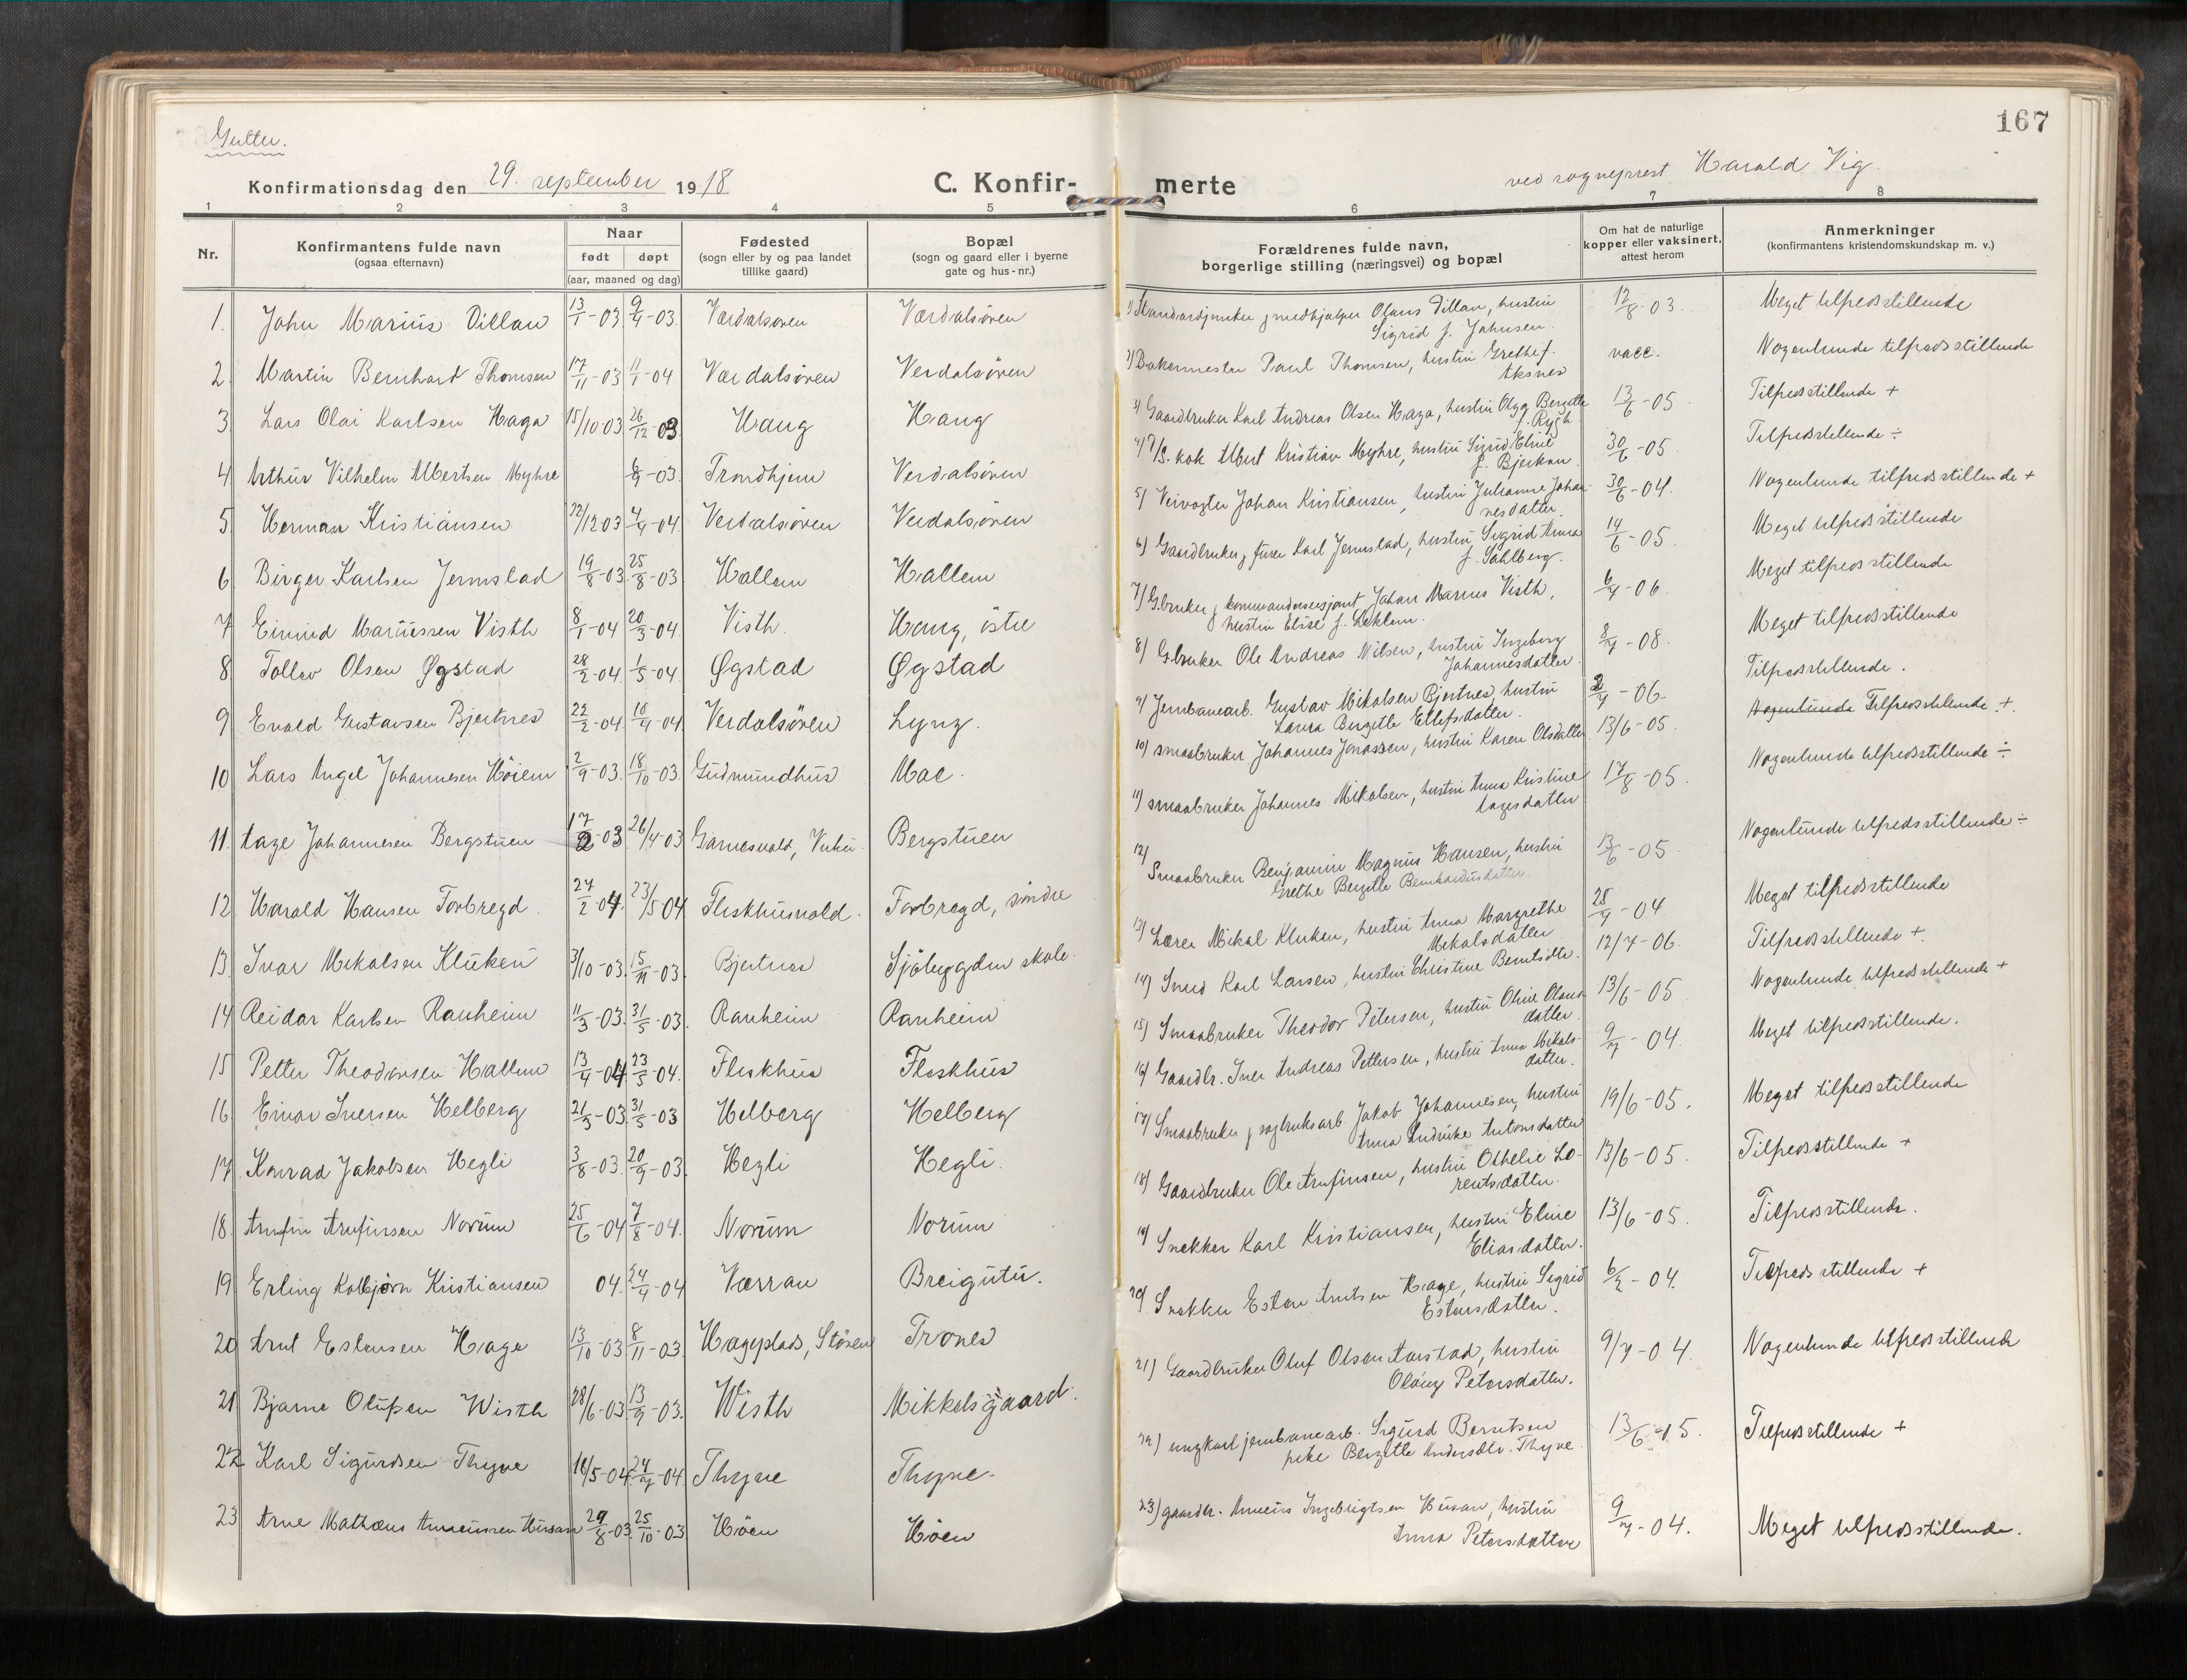 167
Gutter.
Konfirmationsdag den 29. september 1918 C. Konfir- merte ved sogneprest Harald Vig.
1 2 3 4 5 6 7 8
Nr. Konfirmantens fulde navn (ogsaa efternavn) Naar født døpt (aar, maaned og dag) Fødested (sogn eller by og paa landet tillike gaard) Bopæl (sogn og gaard eller i byerne gate og hus-nr.) Forældrenes fulde navn, borgerlige stilling (næringsvei) og bopæl Om hat de naturlige kopper eller vaksinert, attest herom Anmerkninger (konfirmantens kristendomskundskap m. v.)
1. John Marius Dillan 13/1-03. 9/4-03. Værdalsøren Værdalsören
2. Martin Bernhard Thomsen 17/11-03 11/1-04 Værdalsören Verdalsören
3. Lars Olai Karlsen Haga 15/10 03 26/12-03 Haug Haug
4. Arthur Vilhelm Albertsen Myhre 6/9-03. Trondhjem Verdalsören
5. Herman Kristiansen 22/12 03 4/4-04 Verdalsören Verdalsören
6. Birger Karlsen Jermstad 19/8-03. 25/8-03 Hallem Hallem
7 Eivind Mariussen Visth 8/1-04 20/3-04. Visth. Haug, östre
8 Tollev Olsen Øgstad 28/2-04. 1/5-04 Øgstad Øgstad
9 Evald Gustavsen Bjertnes 22/2-04 10/4-04 Verdalsören Lyng.
10 Lars Angel Johannesen Höiem 2/9-03. 18/10-03. Gudmundhus Mac.
11. Aage Johannesen Bergstuen 17/2-03 26/4-03 Garnesvald, Bergstuen
12. Harald Hansen Forbregd. 27/2-04. 23/5 04 Fleskhusvald. Forbregd, söndre
13. Ivar Mikalsen Kluken 3/10-03. 15/11-03. Bjertnes Sjöbygden skole.
14 Reidar Karlsen Ranheim 11/3-03. 31/5-03. Ranheim Ranheim
15 Petter Theodorsen Hallem 13/4-04 23/5-04. Fleskhus Fleskhus
16. Einar Iversen Helberg 21/3-03. 31/5-03 Helberg Helberg
17. Konrad Jakobsen Hegli 3/8-03. 20/9-03. Hegli Hegli.
18. Arnfin Arnfinsen Norum 25/6-04 7/8-04. Norum Norum
19 Erling Kolbjörn Kristiansen 04. 24/4-04 Værran Breigutu.
20 Arnt Estensen Hage 13/10-03 8/11-03. Hageplads, Stören Trones
21 Bjarne Olufsen Wisth 28/6-03 13/9-03. Wisth Mikkelsgaard.
22 Karl Sigurdsen Thyve 16/5-04 24/7-04 Thyve Thyve.
23 Arne Mathæus Ameussen Husan 29/8-03. 25/10-03 Höen Höen
1) Standardjunker, smedhjælper Olaus Dillan, hustru
Sigrid f. Johnsen.
12/8-03. Meget tilfredsstillende
2) Bakermester Paul Thomsen, hustru Grethe f.
Aksnes
vacc. Nogenlunde tilfredsstillende
3) Gaardbruker Karl Andreas Olsen Haga, hustru Olga Bergitte
f. Rygh
13/6-05. Tilfredsstillende +
4) D/S. kok Albert Kristian Myhre, hustru Sigrid Eline
f. Bjerkan.
30/6-05. Tilfredsstillende ÷
5) Veivogter Johan Kristiansen, hustru Julianne Johan-
nesdatter.
30/6-04. Nogenlunde tilfredsstillende +
6) Gaardbruker, furer Karl Jermstad, hustru Sigrid Anna
f. Sahlberg.
14/6-05. Meget tilfredsstillende
7) G.bruker, kommandersersjant Johan Marius Visth,
hustru Elise f. Leklem.
6/7-06. Meget tilfredsstillende
8) G.bruker Ole Andreas Nilsen, hustru Ingeborg
Johannesdatter.
8/7-08. Meget tilfredsstillende
9) Jernbanearb. Gustav Mikalsen Bjertnes, hustru
Laura Bergitte Ellefsdatter.
2/7-06. Tilfredsstillende.
10) smaabruker Johannes Jonassen, hustru Karen Olsdatter
13/6-05. Nogenlunde Tilfredsstillende +.
11) smaabruker Johannes Mikalsen, hustru Anna Kristine
Aagesdatter
17/8-05. Nogenlunde tilfredsstillende ÷
12) Smaabruker Benjamin Magnus Hansen, hustru
Grethe Bergitte Bernhardusdatter.
13/6-05. Nogenlunde tilfredsstillende ÷
13) Lærer Mikal Kluken, hustru Anna Margrethe
Mikalsdatter
28/4-04. Meget tilfredsstillende
14) Smed Karl Larsen, hustru Christine Berntsdtr.
12/7-06. Tilfredsstillende +.
15) Smaabruker Theodor Petersen, hustru Oline Olaus-
datter.
13/6-05 Nogenlunde tilfredsstillende +
16) Gaardbr. Iver Andreas Pettersen, hustru Anna Mikals-
datter.
9/7-04. Meget tilfredsstillende.
17) Smaabruker, sagbruksarb. Jakob Johannesen, hustru
Anna Ludvike Antonsdatter
19/6-05. Meget tilfredsstillende
18) Gaardbruker Ole Arnfinsen, hustru Othelie Lo-
rentsdatter.
13/6-05. Tilfredsstillende +
19) Snekker Karl Kristiansen, hustru Eline
Eliasdatter.
13/6-05. Tilfredsstillende.
20) Snekker Esten Arntsen Hage, hustru Sigrid
Estensdatter.
6/2-04. Tilfredsstillende +
21) Gaardbruker Oluf Olsen Aarstad, hustru
Olöug Petersdatter.
9/7-04. Nogenlunde tilfredsstillende
22) ungkarl jernbanearb. Sigurd Berntsen
pike Bergitte Andersdtr. Thyve
13/6-15. Tilfredsstillende +
23) gaardbr. Ameus Ingebrigtsen Husan, hustru
Anna Petersdatter
9/7-04. Meget tilfredsstillende.